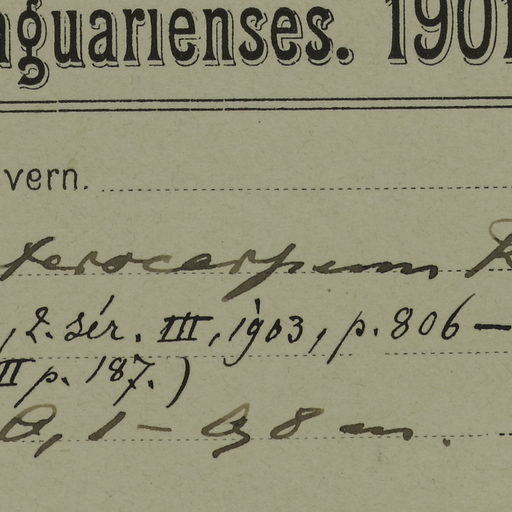 aguarienses. 1901
vern.
terocarpum
, 2. sér. III, 1903, p. 806 —
II p. 187.)
0,1 - 0,8 m.